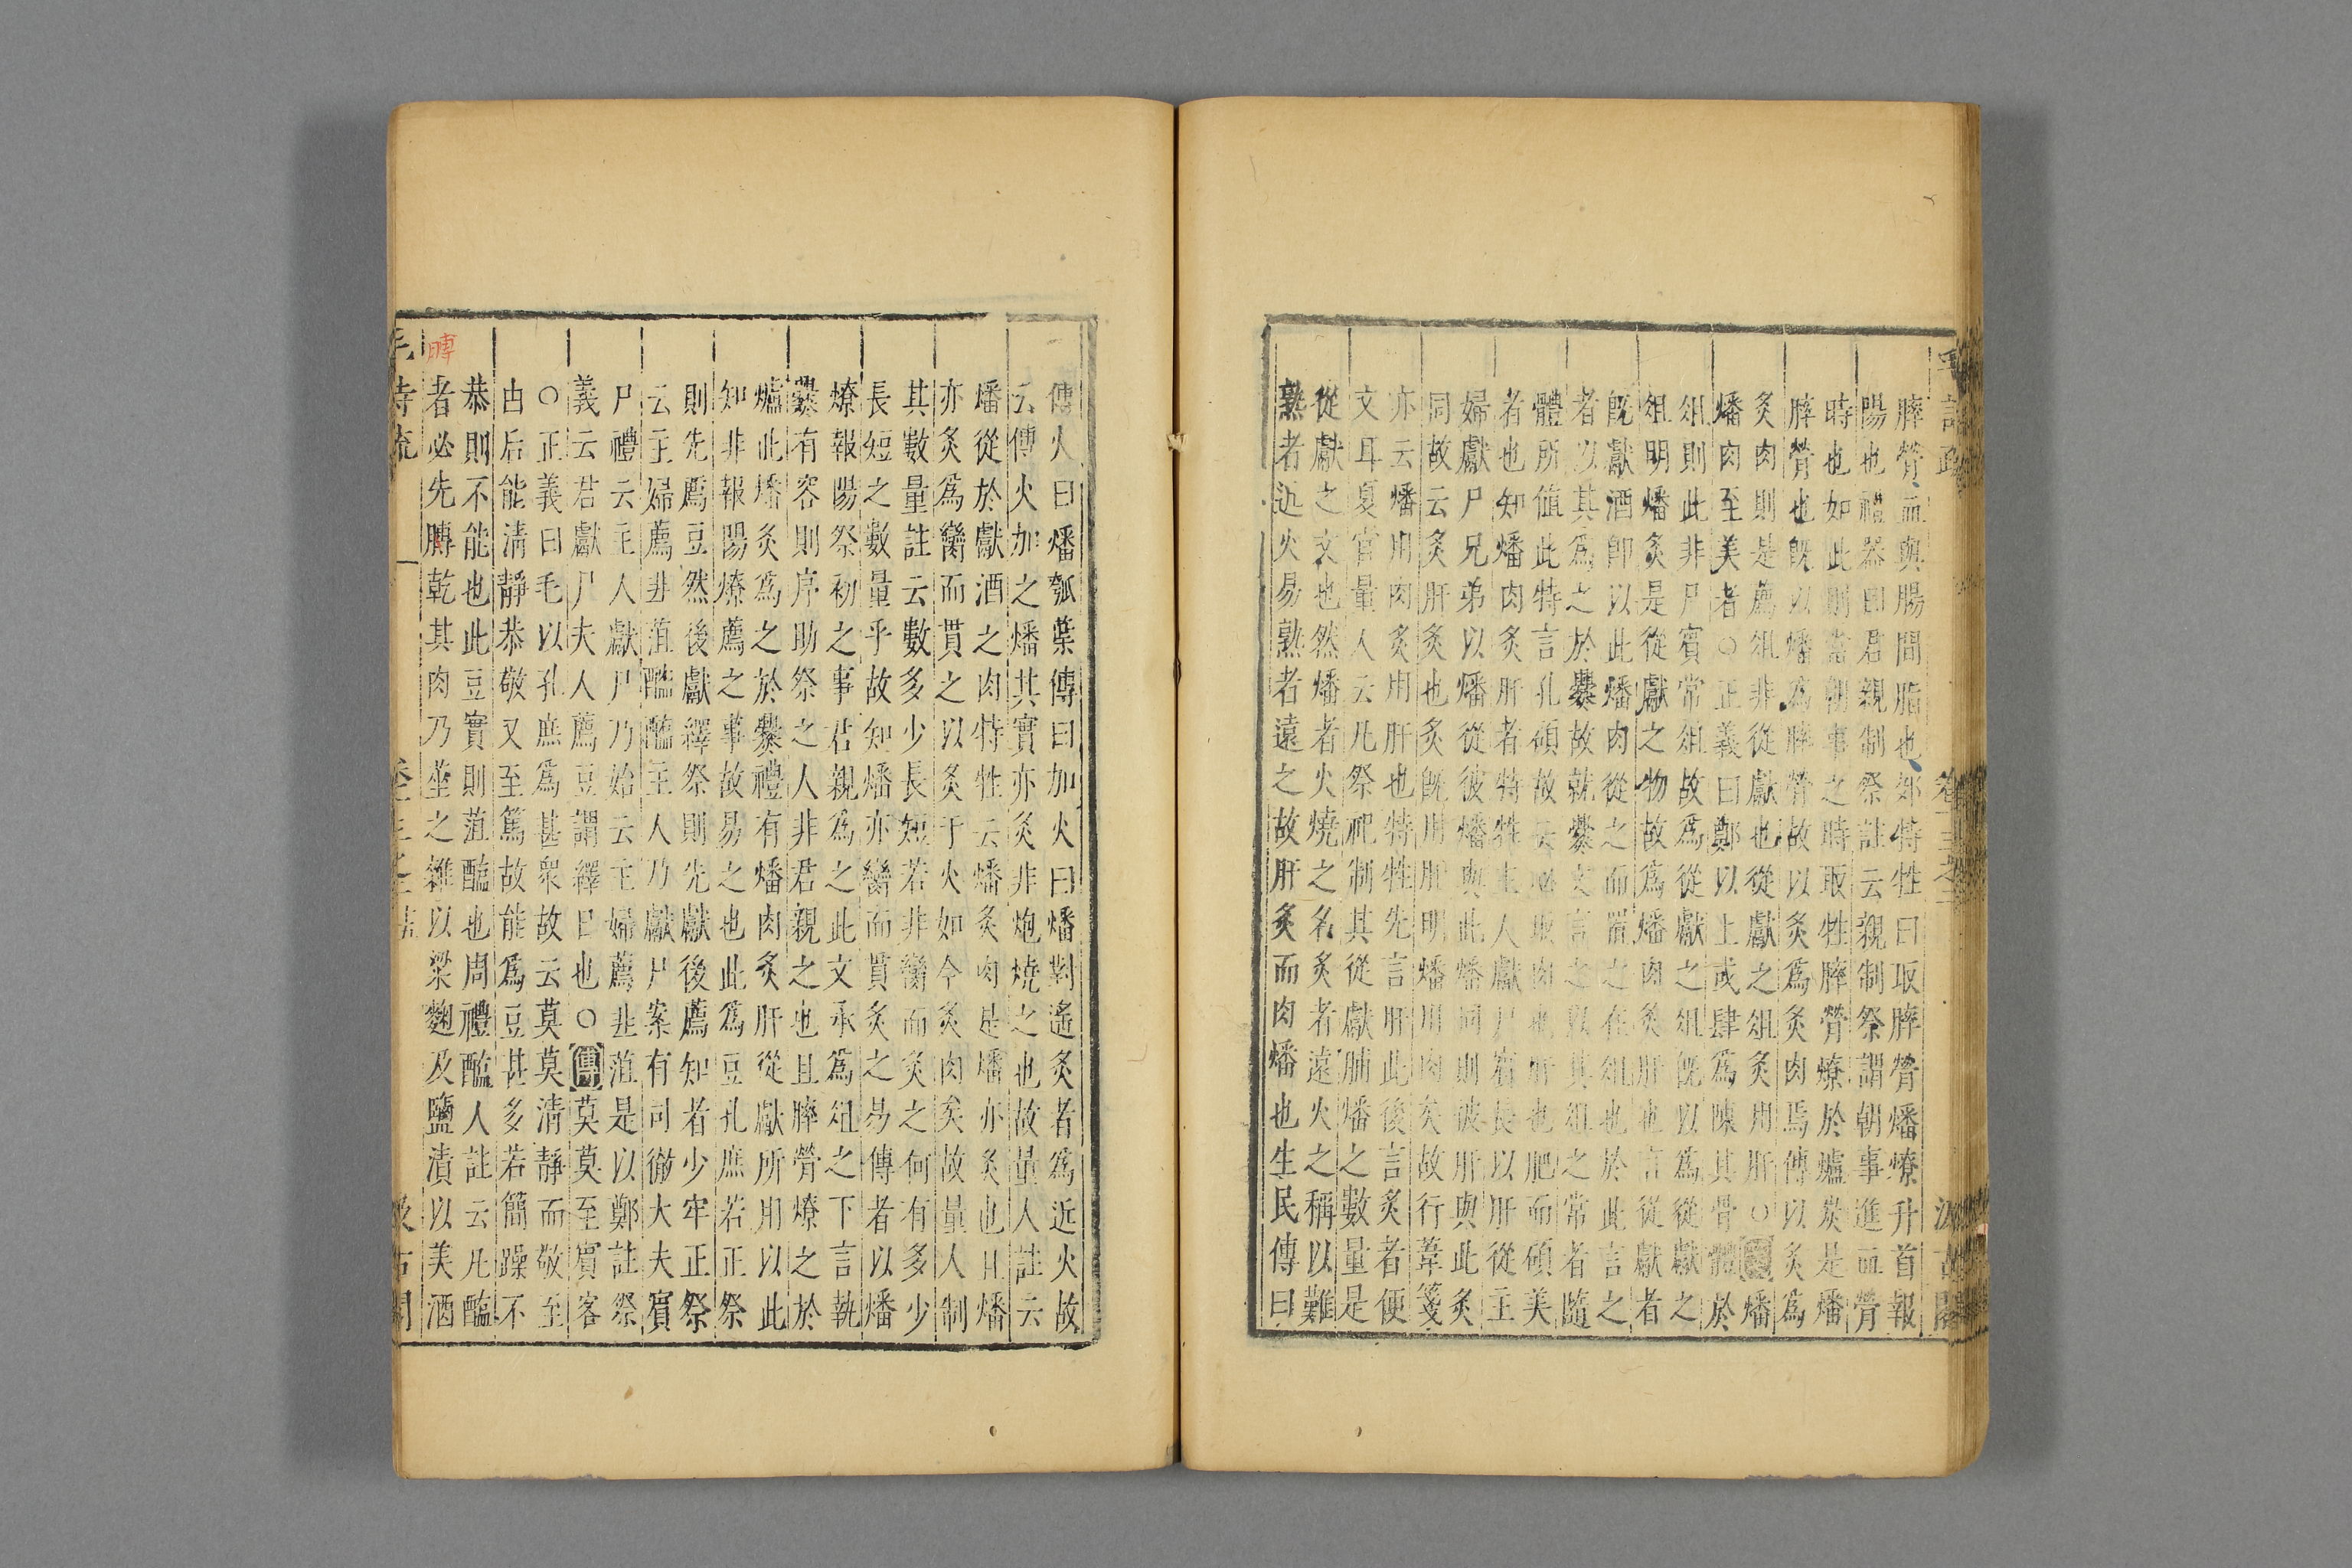 膟膋而與腸間脂也郊特牲曰取膟膋燔燎升首報
陽也禮器曰君親制祭註云親制祭謂朝事進而膋
時也如此則當朝事之時取牲膟膋燎於爐炭是燔
膟膋也既以燔為膟膋故以炙為炙肉焉傳以炙為
炙肉則是薦俎非從獻也從獻之俎炙用肝○燔
燔肉至美者○正義曰鄭以上或肆為陳其骨體於
俎則此非尸賓常俎故為從獻之俎既以為從獻之
俎明燔炙是從獻之物故為燔肉炙肝也言從獻者
既獻酒即以此燔肉從之而置之在俎也於此言之
者以其為之於爨故就爨文言之以其俎之常者隨
體所值此特言孔碩故云必取肉也肝也肥而碩美
者也知燔肉炙肝者特牲主人獻尸賓長以肝從主
婦獻尸兄弟以燔從彼燔與此燔同則彼肝與此炙
同故云炙肝炙也炙既用肝明燔用肉矣故行葦箋
亦云燔用肉炙用肝也特牲先言肝此後言炙者便
文耳夏官量人云凡祭祀制其從獻脯燔之數量是
從獻之文也然燔者火燒之名炙者遠火之稱以難
熟者近火易熟者遠之故肝炙而肉燔也生民傳曰
毛詩疏
汲古閣
傅火曰燔瓠葉傳曰加火曰燔對遙炙者為近火故
云傅火加之燔其實亦炙非炮燒之也故量人註云
燔從於獻酒之肉特牲云燔炙肉是燔亦炙也且燔
亦炙為臠而貫之以炙于火如今炙肉矣故量人制
其數量註云數多少長短若非臠而炙之何有多少
長短之數量乎故知燔亦臠而貫炙之易傳者以燔
燎報陽祭初之事君親為之此文承為俎之下言執
爨有容則序助祭之人非君親之也且膟膋燎之於
爐此燔炙為之於爨禮有燔肉炙肝從獻所用以此
知非報陽燎薦之事故易之也此為豆孔庶若正祭
則先薦豆然後獻繹祭則先獻後薦知者少牢正祭
云主婦薦韭菹醓醢主人乃獻尸案有司徹大夫賓
尸禮云主人獻尸乃始云主婦薦韭菹是以鄭註祭
義云君獻尸夫人薦豆謂繹日也○傳莫莫至賓客
○正義曰毛以孔庶為甚眾故云莫莫清靜而敬至
由后能清靜恭敬又至篤故能為豆甚多若簡躁不
恭則不能也此豆實則菹醢也周禮醢人註云凡醢
者必先膊乾其肉乃莝之雜以梁麴及鹽漬以美酒
膞